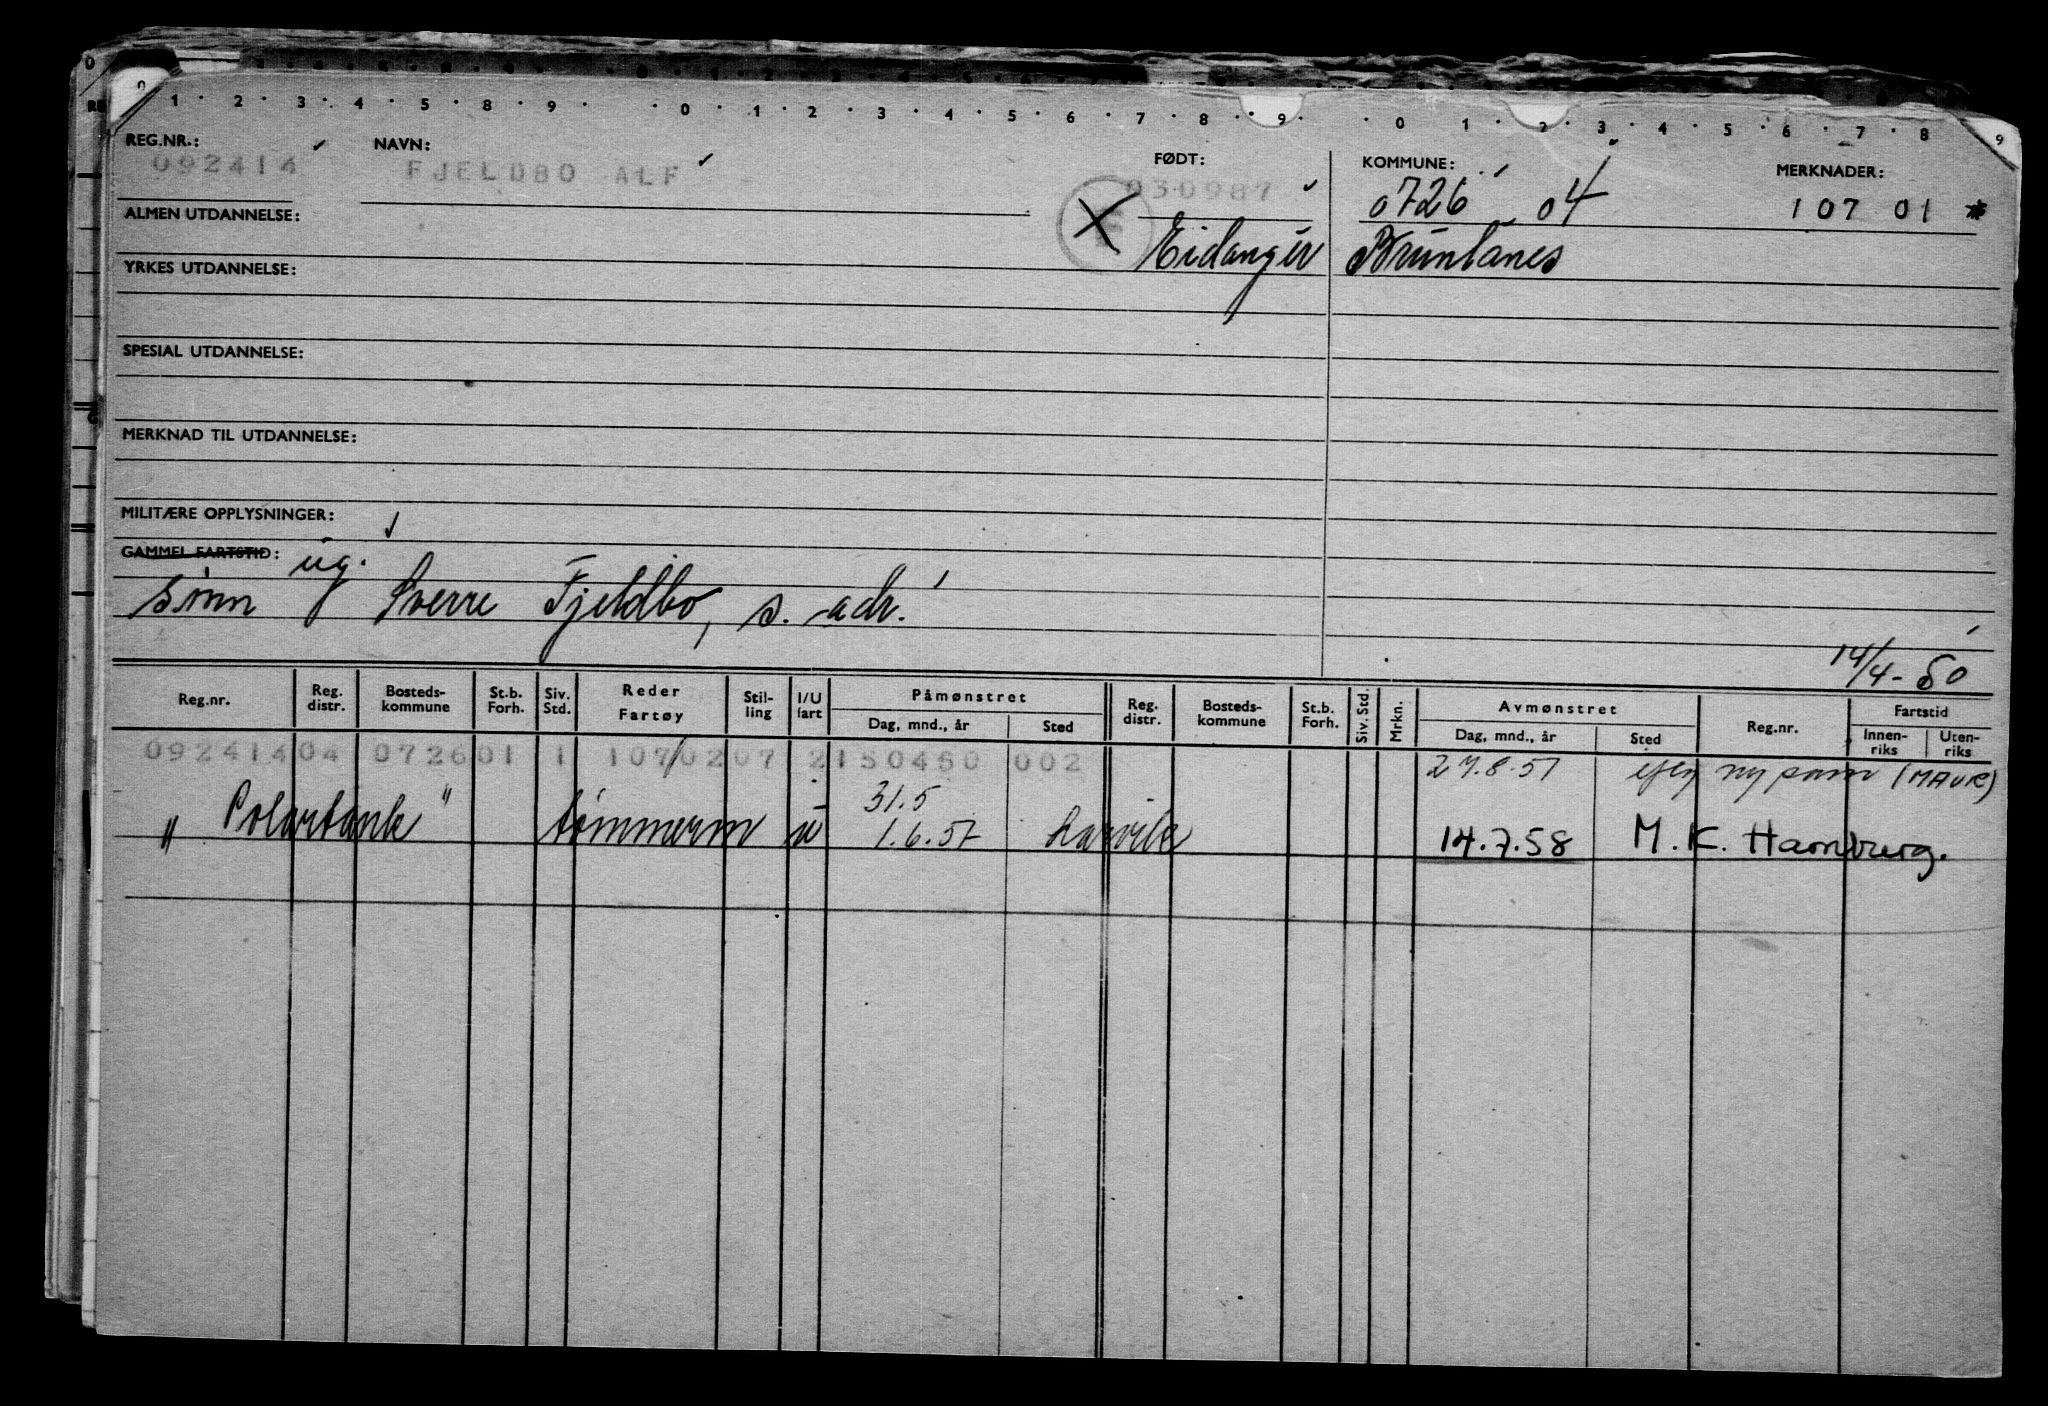 1 · 2 · 3 · 4 · 5 · 8 · 9 · 0 · 1 · 2 · 3 · 4 · 5 · 6 · 7 · 8 · 9 · 0 · 1 · 2 · 3 · 4 · 5 · 6 · 7 · 8 9
REG.NR.: NAVN: FØDT: KOMMUNE: MERKNADER:
092414 FJELDBO ALF 030987 0726 04 10701 *
ALMEN UTDANNELSE: Eidanger Brunlanes
YRKES UTDANNELSE:
SPESIAL UTDANNELSE:
MERKNAD TIL UTDANNELSE:
MILITÆRE OPPLYSNINGER:
GAMMEL FARTSTID: ug.
sønn Sverre Fjeldbo, s. adr.
14/4-50
Reg.nr. Reg. distr. Bosteds-kommune St.b. Forh. Siv. Std. Reder Fartøy Stil-ling I/U fart Påmønstret Dag, mnd., år Sted Reg. distr. Bosteds-kommune St.b. Forh. Siv. Std. Mrkn. Avmønstret Dag, mnd., år Sted Reg.nr. Fartstid Innen-riks Uten-riks
09241404 072601 1 107/0207 2150450 002 27.8.57 ny (MAVR)
31.5
" Polartank" tømmerm u 1.6.57 Larvik 14.7.58 M.K. Hamburg.